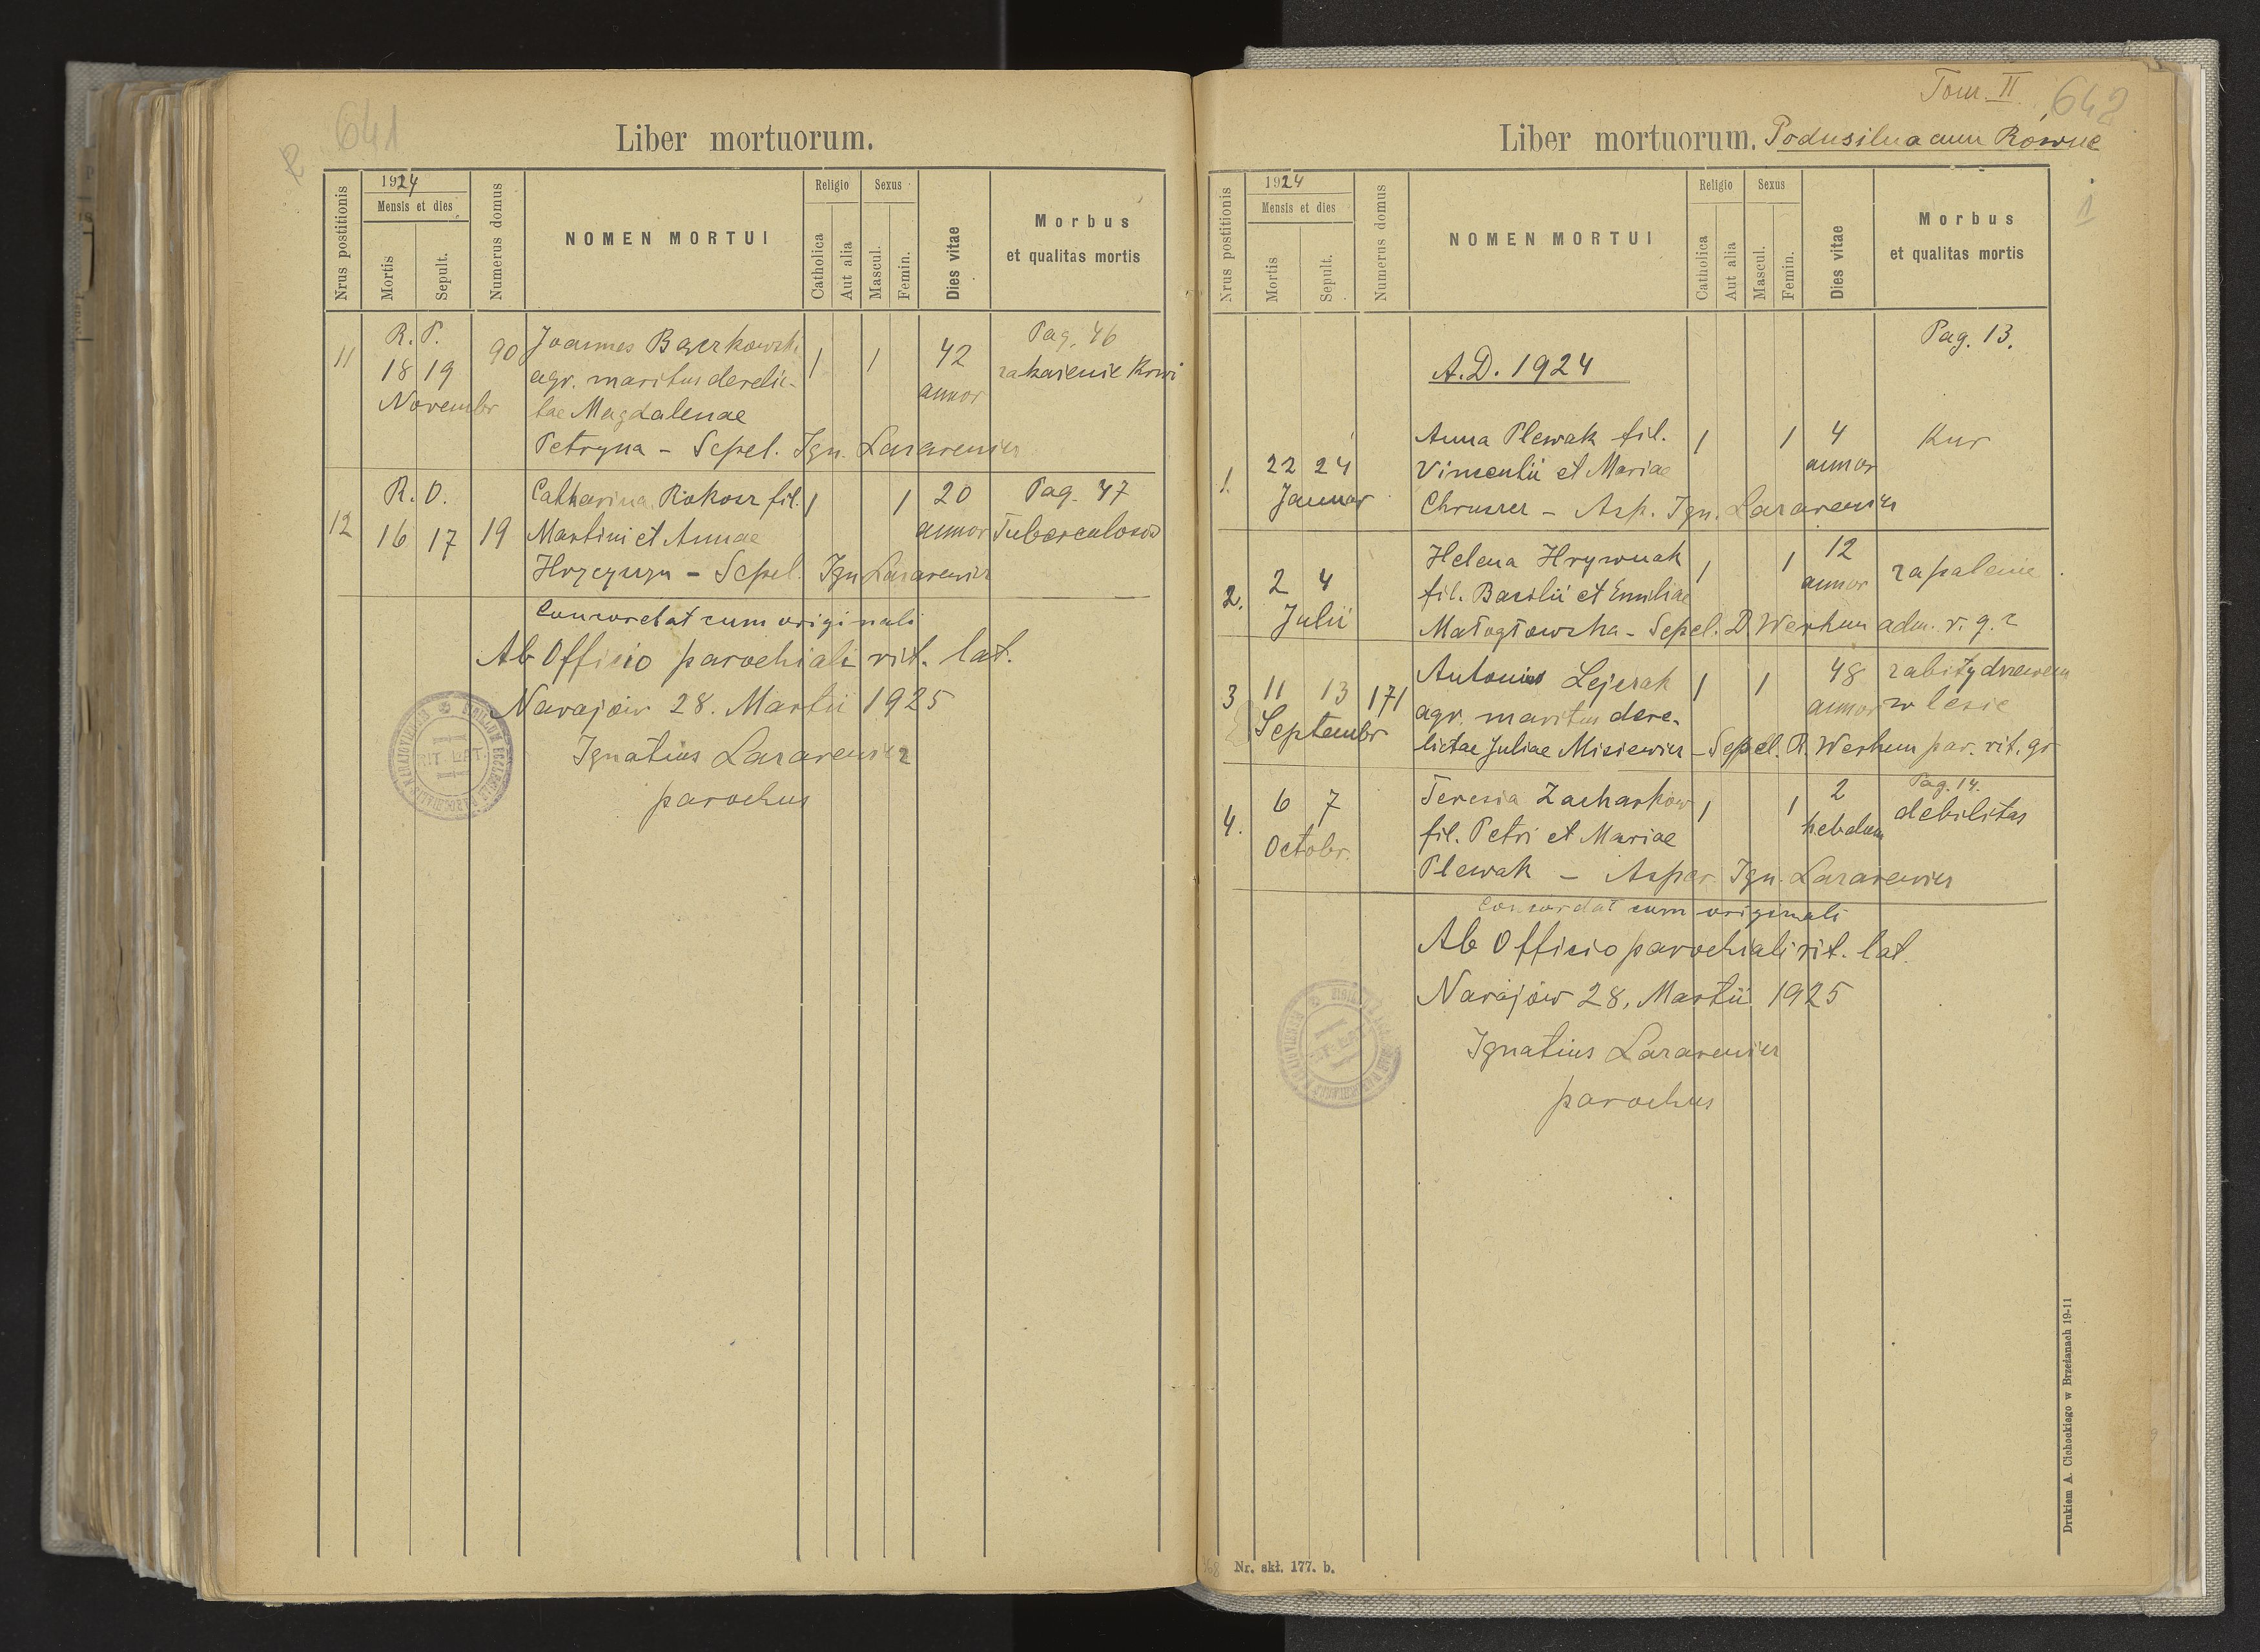 641
Liber mortuorum.
Nrus postitionis
1924
Mensis et dies
Mortis
Sepult.
Numerus domus
NOMEN MORTUI
Religio
Catholica
Aut alia
Sexus
Mascul.
Femin.
Dies vitae
Morbus
et qualitas mortis
R. P. Pag. 46
11 18 19 90 Joannes 1 1 42 zakażenie krwi
Novembr agr. maritus derelic- annor
tae Magdalenae
Petryna - Sepel. Ign. Lazarewicz
R. O. Catharina Rokosz fil. 1 1 20 Pag. 47
12 16 17 19 Martini et Annae annor Tuberculosis
- Sepel. Ign Lazarewicz
Concordat cum originali
Ab Officio parochiali rit. lat.
Narajów 28. Martii 1925
Ignatius Lazarewicz
parochus
RIT. LAT.
Tom. II 642
Liber mortuorum. Podusilna cum Równe
1
Nrus postitionis
1924
Mensis et dies
Mortis
Sepult.
Numerus domus
NOMEN MORTUI
Religio
Catholica
Aut alia
Sexus
Mascul.
Femin.
Dies vitae
Morbus
et qualitas mortis
Pag. 13.
A.D. 1924
Anna Plewak fil. 1 1 4 Kur
1. 22 24 Vincentii et Mariae annor
Januar Chruszcz - Asp. Ign. Lazarewicz
Helena Hrywnak 1 1 12 zapalenie
2. 2 4 fil. Basilii et Emiliae annor
Julii Małogłowska - Sepel. D. Werhun adm. r. g.
Antonius Lejczak 1 1 48 zabity drzewem
3 11 13 171 agr. maritus dere- annor w lesie
Septembr lictae Juliae Misiewicz - Sepel. R. Werhun par. rit. gr
Pag. 14.
4. 6 7 Teresia Zacharków 1 1 2 debilitas
Octobr. fil. Petri et Mariae hebdom
Plewak - Asper. Ign. Lazarewicz
Concordat cum originali
Ab Officio parochiali rit. lat.
Narajów 28. Martii 1925
Ignatius Lazarewicz
parochus
Drukiem A. Cichockiego w Brzeżanach 19-11
Nr. skł. 177. b.